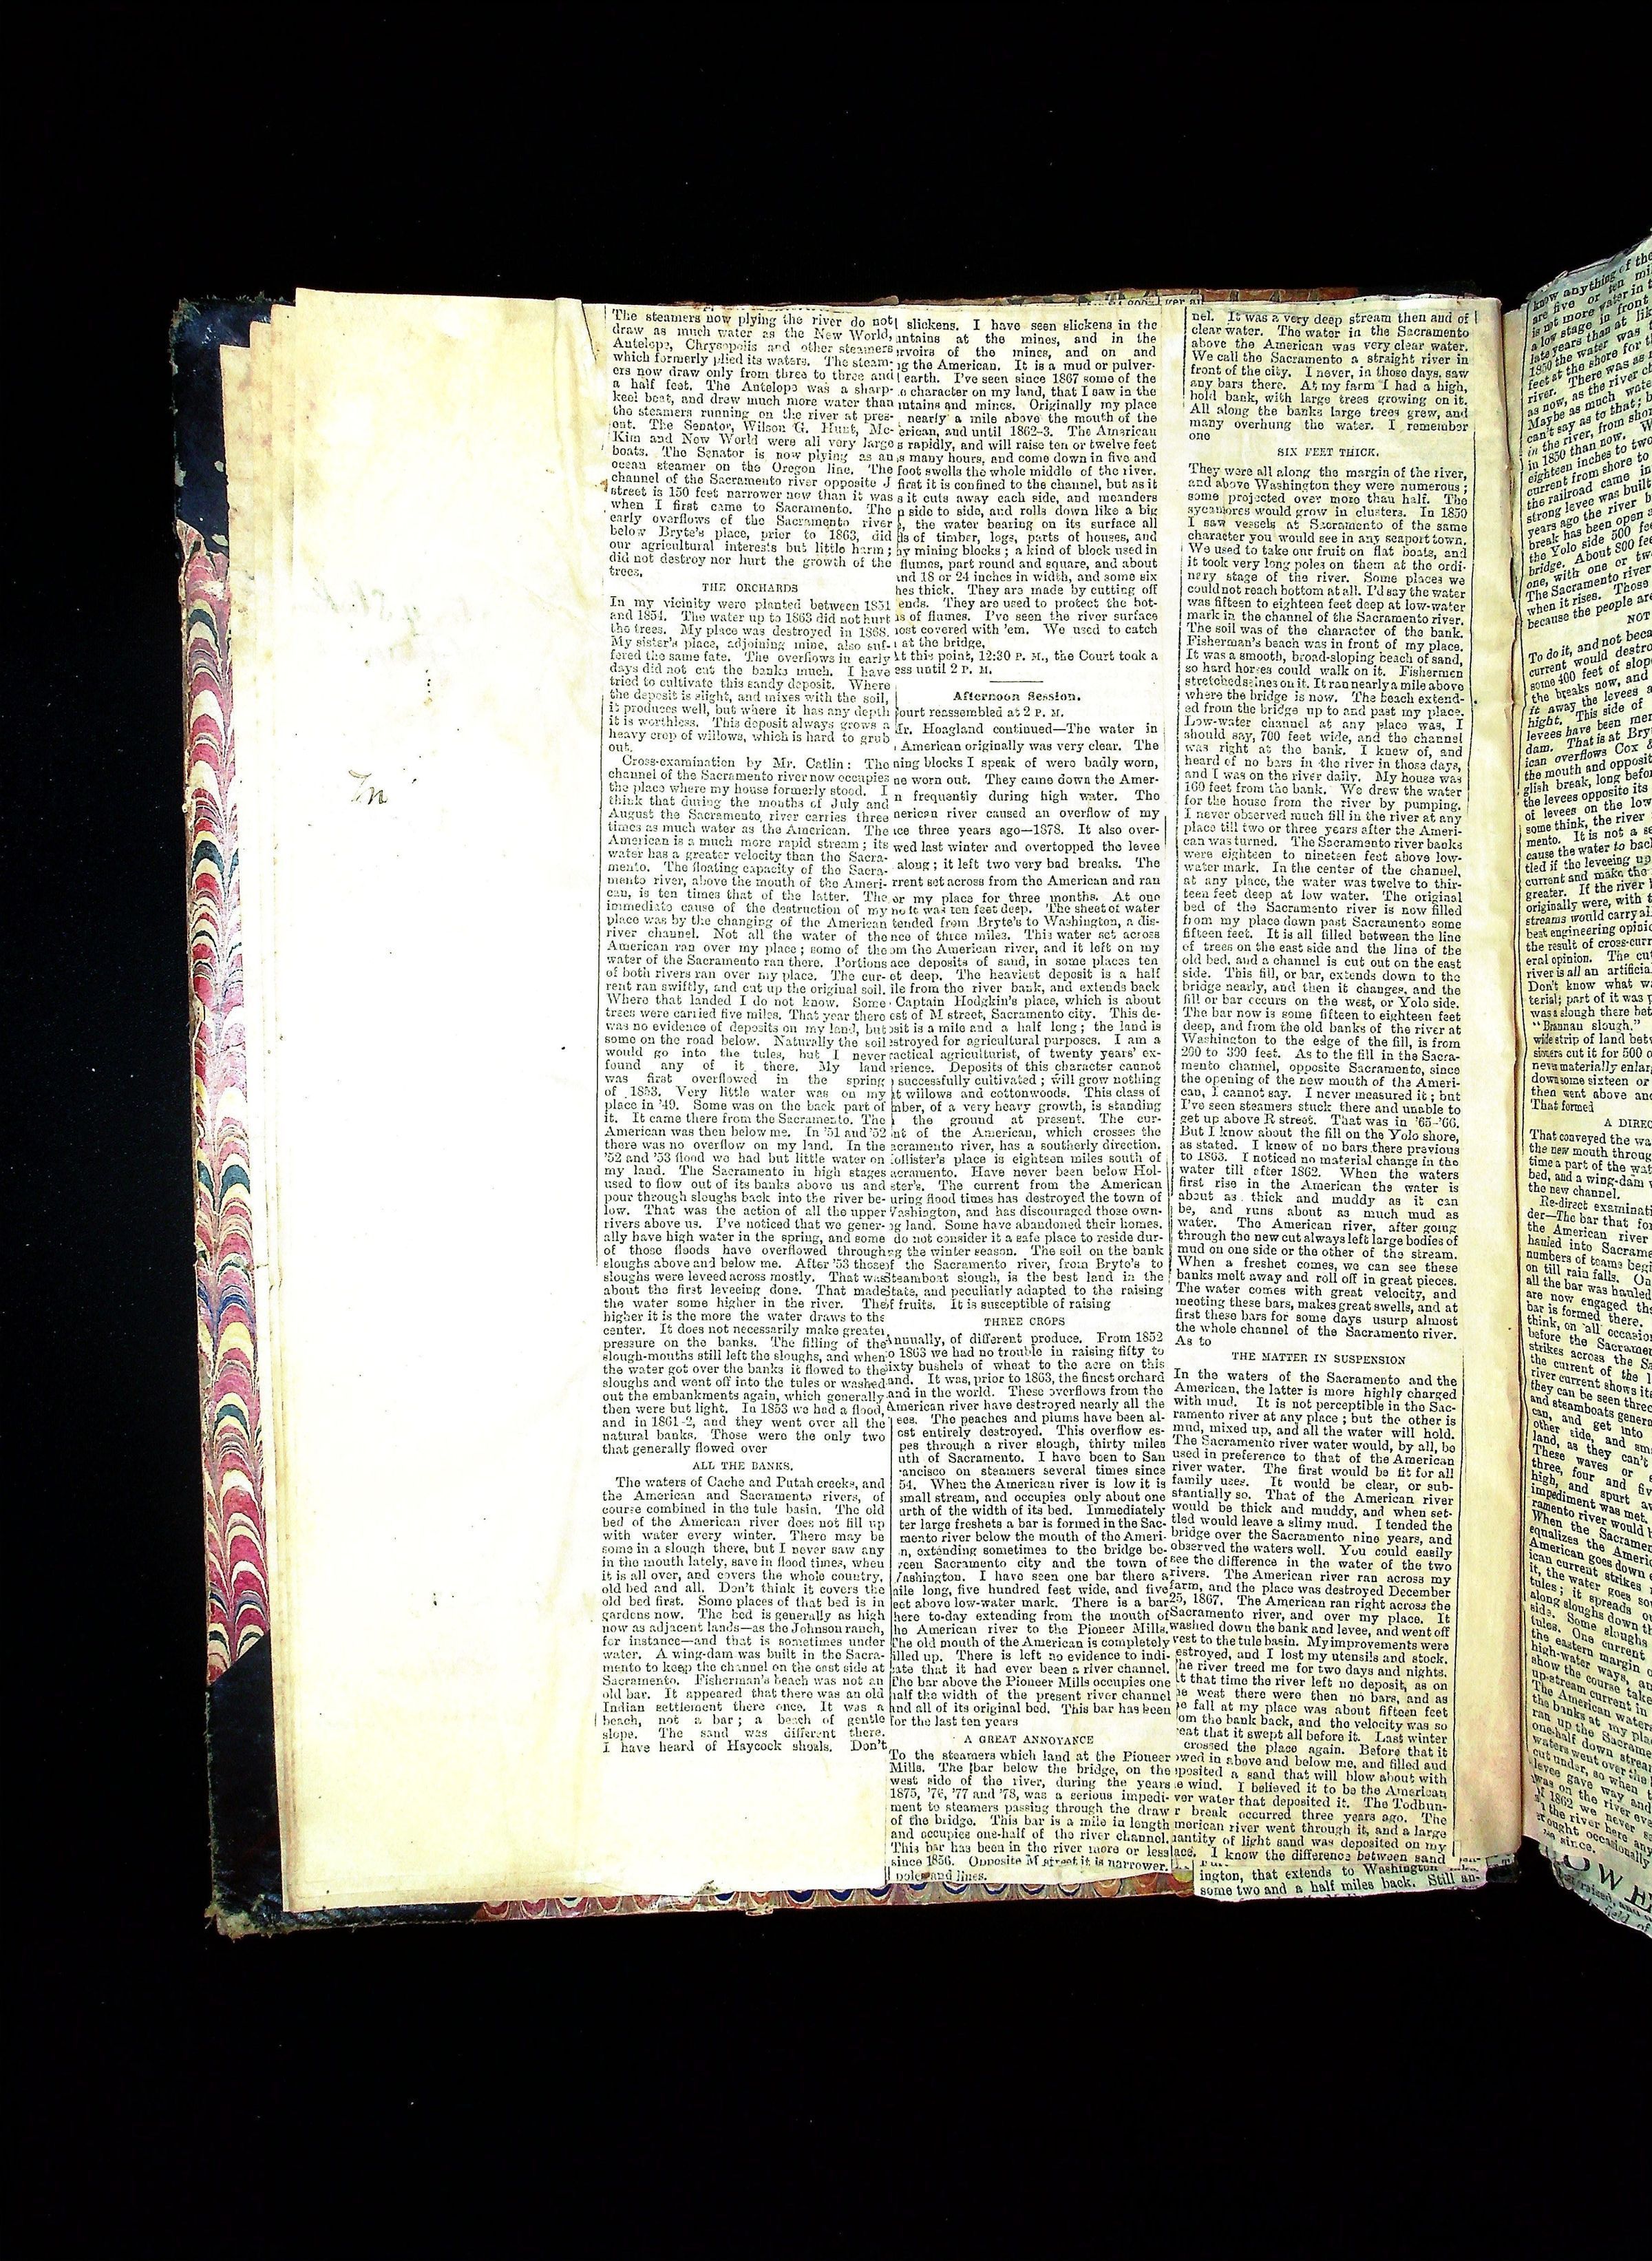 The steamers now plying the river do not
draw as much water as the New World,
Antelope, Chrysopolis and other steamers
which formerly plied its waters. The steam-
ers now draw only from three to three and
a half feet. The Antelope was a sharp-
keel boat, and drew much more water than
the steamers running on the river at pres-
ent. The Senator, Wilson G. Hunt, Mc-
Kim and New World were all very large
boats. The Senator is now plying as an
ocean steamer on the Oregon line. The
channel of the Sacramento river opposite J
street is 150 feet narrower now than it was
when I first came to Sacramento. The
early overflows of the Sacramento river
below Bryte's place, prior to 1863, did
our agricultural interests but little harm;
did not destroy nor hurt the growth of the
trees.
THE ORCHARDS
In my vicinity were planted between 1851
and 1854. The water up to 1863 did not hurt
the trees. My place was destroyed in 1868.
My sister's place, adjoining mine, also suf-
fered the same fate. The overflows in early
days did not cut the banks much. I have
tried to cultivate this sandy deposit. Where
the deposit is slight, and mixes with the soil,
it produces well, but where it has any depth
it is worthless. This deposit always grows a
heavy crop of willows, which is hard to grub
out.
Cross-examination by Mr. Catlin: The
channel of the Sacramento river now occupies
the place where my house formerly stood. I
think that during the months of July and
August the Sacramento river carries three
times as much water as the American. The
American is a much more rapid stream; its
water has a greater velocity than the Sacra-
mento. The floating capacity of the Sacra-
mento river, above the mouth of the Ameri-
can, is ten times that of the latter. The
immediate cause of the destruction of my
place was by the changing of the American
river channel. Not all the water of the
American ran over my place; some of the
water of the Sacramento ran there. Portions
of both rivers ran over my place. The cur-
rent ran swiftly, and cut up the original soil.
Where that landed I do not know. Some
trees were carried five miles. That year there
was no evidence of deposits on my land, but
some on the road below. Naturally the soil
would go into the tules, but I never
found any of it there. My land
was first overflowed in the spring
of 1853. Very little water was on my
place in '49. Some was on the back part of
it. It came there from the Sacramento. The
American was then below me. In '51 and '52
there was no overflow on my land. In the
'52 and '53 flood we had but little water on
my land. The Sacramento in high stages
used to flow out of its banks above us and
pour through sloughs back into the river be-
low. That was the action of all the upper
rivers above us. I've noticed that we gener-
ally have high water in the spring, and some
of those floods have overflowed through
sloughs above and below me. After '53 those
sloughs were leveed across mostly. That was
about the first leveeing done. That made
the water some higher in the river. The
higher it is the more the water draws to the
center. It does not necessarily make greater
pressure on the banks. The filling of the
slough-mouths still left the sloughs, and when
the water got over the banks it flowed to the
sloughs and went off into the tules or washed
out the embankments again, which generally
then were but light. In 1853 we had a flood,
and in 1861-2, and they went over all the
natural banks. Those were the only two
that generally flowed over
ALL THE BANKS.
The waters of Cache and Putah creeks, and
the American and Sacramento rivers, of
course combined in the tule basin. The old
bed of the American river does not fill up
with water every winter. There may be
some in a slough there, but I never saw any
in the mouth lately, save in flood times, when
it is all over, and covers the whole country,
old bed and all. Don't think it covers the
old bed first. Some places of that bed is in
gardens now. The bed is generally as high
now as adjacent lands—as the Johnson ranch,
for instance—and that is sometimes under
water. A wing-dam was built in the Sacra-
mento to keep the channel on the east side at
Sacramento. Fisherman's beach was not an
old bar. It appeared that there was an old
Indian settlement there once. It was a
beach, not a bar; a beach of gentle
slope. The sand was different there.
I have heard of Haycock shoals. Don't
slickens. I have seen slickens in the
untains at the mines, and in the
ervoirs of the mines, and on and
ng the American. It is a mud or pulver-
earth. I've seen since 1867 some of the
e character on my land, that I saw in the
untains and mines. Originally my place
nearly a mile above the mouth of the
erican, and until 1862-3. The American
s rapidly, and will raise ten or twelve feet
s many hours, and come down in five and
foot swells the whole middle of the river.
first it is confined to the channel, but as it
s it cuts away each side, and meanders
p side to side, and rolls down like a big
, the water bearing on its surface all
ds of timber, logs, parts of houses, and
ny mining blocks; a kind of block used in
flumes, part round and square, and about
and 18 or 24 inches in width, and some six
hes thick. They are made by cutting off
ends. They are used to protect the bot-
s of flumes. I've seen the river surface
ost covered with 'em. We used to catch
at the bridge.
At this point, 12:30 P. M., the Court took a
ess until 2 P. M.
Afternoon Session.
ourt reassembled at 2 P. M.
Mr. Hoagland continued—The water in
American originally was very clear. The
ning blocks I speak of were badly worn,
ne worn out. They came down the Amer-
n frequently during high water. The
nerican river caused an overflow of my
ce three years ago—1878. It also over-
wed last winter and overtopped the levee
along; it left two very bad breaks. The
rrent set across from the American and ran
er my place for three months. At one
ne it was ten feet deep. The sheet of water
tended from Bryte's to Washington, a dis-
nce of three miles. This water set across
om the American river, and it left on my
ace deposits of sand, in some places ten
et deep. The heaviest deposit is a half
ile from the river bank, and extends back
Captain Hodgkin's place, which is about
est of M street, Sacramento city. This de-
osit is a mile and a half long; the land is
estroyed for agricultural purposes. I am a
ractical agriculturist, of twenty years' ex-
erience. Deposits of this character cannot
successfully cultivated; will grow nothing
ut willows and cottonwoods. This class of
mber, of a very heavy growth, is standing
the ground at present. The cur-
nt of the American, which crosses the
acramento river, has a southerly direction.
ollister's place is eighteen miles south of
acramento. Have never been below Hol-
ster's. The current from the American
uring flood times has destroyed the town of
Washington, and has discouraged those own-
ng land. Some have abandoned their homes.
do not consider it a safe place to reside dur-
ng the winter season. The soil on the bank
of the Sacramento river, from Bryte's to
Steamboat slough, is the best land in the
State, and peculiarly adapted to the raising
of fruits. It is susceptible of raising
THREE CROPS
Annually, of different produce. From 1852
to 1863 we had no trouble in raising fifty to
sixty bushels of wheat to the acre on this
land. It was, prior to 1863, the finest orchard
land in the world. These overflows from the
American river have destroyed nearly all the
ees. The peaches and plums have been al-
ost entirely destroyed. This overflow es-
pes through a river slough, thirty miles
uth of Sacramento. I have been to San
rancisco on steamers several times since
54. When the American river is low it is
small stream, and occupies only about one
urth of the width of its bed. Immediately
ter large freshets a bar is formed in the Sac-
mento river below the mouth of the Ameri-
n, extending sometimes to the bridge be-
ween Sacramento city and the town of
Washington. I have seen one bar there a
mile long, five hundred feet wide, and five
eet above low-water mark. There is a bar
here to-day extending from the mouth of
he American river to the Pioneer Mills.
The old mouth of the American is completely
filled up. There is left no evidence to indi-
cate that it had ever been a river channel.
The bar above the Pioneer Mills occupies one
half the width of the present river channel
and all of its original bed. This bar has been
for the last ten years
A GREAT ANNOYANCE
To the steamers which land at the Pioneer
Mills. The bar below the bridge, on the
west side of the river, during the years
1875, '76, '77 and '78, was a serious impedi-
ment to steamers passing through the draw
of the bridge. This bar is a mile in length
and occupies one-half of the river channel.
This bar has been in the river more or less
since 1856. Opposite M street it is narrower.
poles and lines.
nel. It was a very deep stream then and of
clear water. The water in the Sacramento
above the American was very clear water.
We call the Sacramento a straight river in
front of the city. I never, in those days, saw
any bars there. At my farm I had a high,
bold bank, with large trees growing on it.
All along the banks large trees grew, and
many overhung the water. I remember
one
SIX FEET THICK.
They were all along the margin of the river,
and above Washington they were numerous;
some projected over more than half. The
sycamores would grow in clusters. In 1850
I saw vessels at Sacramento of the same
character you would see in any seaport town.
We used to take our fruit on flat boats, and
it took very long poles on them at the ordi-
nary stage of the river. Some places we
could not reach bottom at all. I'd say the water
was fifteen to eighteen feet deep at low-water
mark in the channel of the Sacramento river.
The soil was of the character of the bank.
Fisherman's beach was in front of my place.
It was a smooth, broad-sloping beach of sand,
so hard horses could walk on it. Fishermen
stretched seines on it. It ran nearly a mile above
where the bridge is now. The beach extend-
ed from the bridge up to and past my place.
Low-water channel at any place was, I
should say, 700 feet wide, and the channel
was right at the bank. I knew of, and
heard of no bars in the river in those days,
and I was on the river daily. My house was
160 feet from the bank. We drew the water
for the house from the river by pumping.
I never observed much fill in the river at any
place till two or three years after the Ameri-
can was turned. The Sacramento river banks
were eighteen to nineteen feet above low-
water mark. In the center of the channel,
at any place, the water was twelve to thir-
teen feet deep at low water. The original
bed of the Sacramento river is now filled
from my place down past Sacramento some
fifteen feet. It is all filled between the line
of trees on the east side and the line of the
old bed, and a channel is cut out on the east
side. This fill, or bar, extends down to the
bridge nearly, and then it changes, and the
fill or bar occurs on the west, or Yolo side.
The bar now is some fifteen to eighteen feet
deep, and from the old banks of the river at
Washington to the edge of the fill, is from
200 to 300 feet. As to the fill in the Sacra-
mento channel, opposite Sacramento, since
the opening of the new mouth of the Ameri-
can, I cannot say. I never measured it; but
I've seen steamers stuck there and unable to
get up above R street. That was in '65-'66.
But I know about the fill on the Yolo shore,
as stated. I knew of no bars there previous
to 1863. I noticed no material change in the
water till after 1862. When the waters
first rise in the American the water is
about as thick and muddy as it can
be, and runs about as much mud as
water. The American river, after going
through the new cut always left large bodies of
mud on one side or the other of the stream.
When a freshet comes, we can see these
banks melt away and roll off in great pieces.
The water comes with great velocity, and
meeting these bars, makes great swells, and at
first these bars for some days usurp almost
the whole channel of the Sacramento river.
As to
THE MATTER IN SUSPENSION
In the waters of the Sacramento and the
American, the latter is more highly charged
with mud. It is not perceptible in the Sac-
ramento river at any place; but the other is
mud, mixed up, and all the water will hold.
The Sacramento river water would, by all, be
used in preference to that of the American
river water. The first would be fit for all
family uses. It would be clear, or sub-
stantially so. That of the American river
would be thick and muddy, and when set-
tled would leave a slimy mud. I tended the
bridge over the Sacramento nine years, and
observed the waters well. You could easily
see the difference in the water of the two
rivers. The American river ran across my
farm, and the place was destroyed December
25, 1867. The American ran right across the
Sacramento river, and over my place. It
washed down the bank and levee, and went off
west to the tule basin. My improvements were
estroyed, and I lost my utensils and stock.
The river treed me for two days and nights.
t that time the river left no deposit, as on
he west there were then no bars, and as
he fall at my place was about fifteen feet
om the bank back, and the velocity was so
reat that it swept all before it. Last winter
crossed the place again. Before that it
owed in above and below me, and filled and
eposited a sand that will blow about with
e wind. I believed it to be the American
ver water that deposited it. The Todhun-
r break occurred three years ago. The
merican river went through it, and a large
uantity of light sand was deposited on my
lace. I know the difference between sand
ington, that extends to Washington
some two and a half miles back. Still an-
In
know anything of the
are five or ten
is not more water in
a low stage in front
late years than at
1850 the water was
feet at the shore for
river. There was as
as now, as the river
Maybe as much
can't say as to that;
in the river, from
in 1850 than now.
eighteen inches to two
current from shore to
the railroad came
strong levee was built
years ago the river
break has been open
the Yolo side 500
bridge. About 800
one, with one or
The Sacramento river
when it rises. Those
because the people are
NOT
To do it, and not
current would
some 400 feet of
the breaks now, and
it away the levees
hight. This side of
levees have been
dam. That is at
ican overflows Cox &
the mouth and
glish break, long
the levees opposite its
of levees on the low
some think, the river
mento. It is not a
cause the water to
tled if the leveeing
current and make the
greater. If the river
originally were, with
streams would carry
best engineering
the result of
eral opinion. The
river is all an
Don't know what
terial; part of it was
was a slough there
"Brannan slough."
wide strip of land
sioners cut it for 500
never materially
down some sixteen or
then went above and
That formed
A
That conveyed the
the new mouth
time a part of the
bed, and a wing-dam
the new channel.
Re-direct
der—The bar that
the American river
hauled into
numbers of teams
on till rain falls.
all the bar was hauled
are now engaged
bar is formed there.
think, on all
before the
strikes across the
the current of the
river current shows
they can be seen
and steamboats
can, and get into
other side, and
land, as they can't
These waves or
three, four and
high, and spurt
impediment was met.
ramento river would
When the
equalizes the
American goes down
ican current strikes
it, the water goes
tules; it spreads
along sloughs down
side. Some sloughs
tules. One current
the eastern margin
high-water ways,
show the course
up-stream current in
The American
the banks at my
ran up the
one-half down
waters went over the
cut under, so when
levee gave way and
was on the river
1862 we never
the river here any